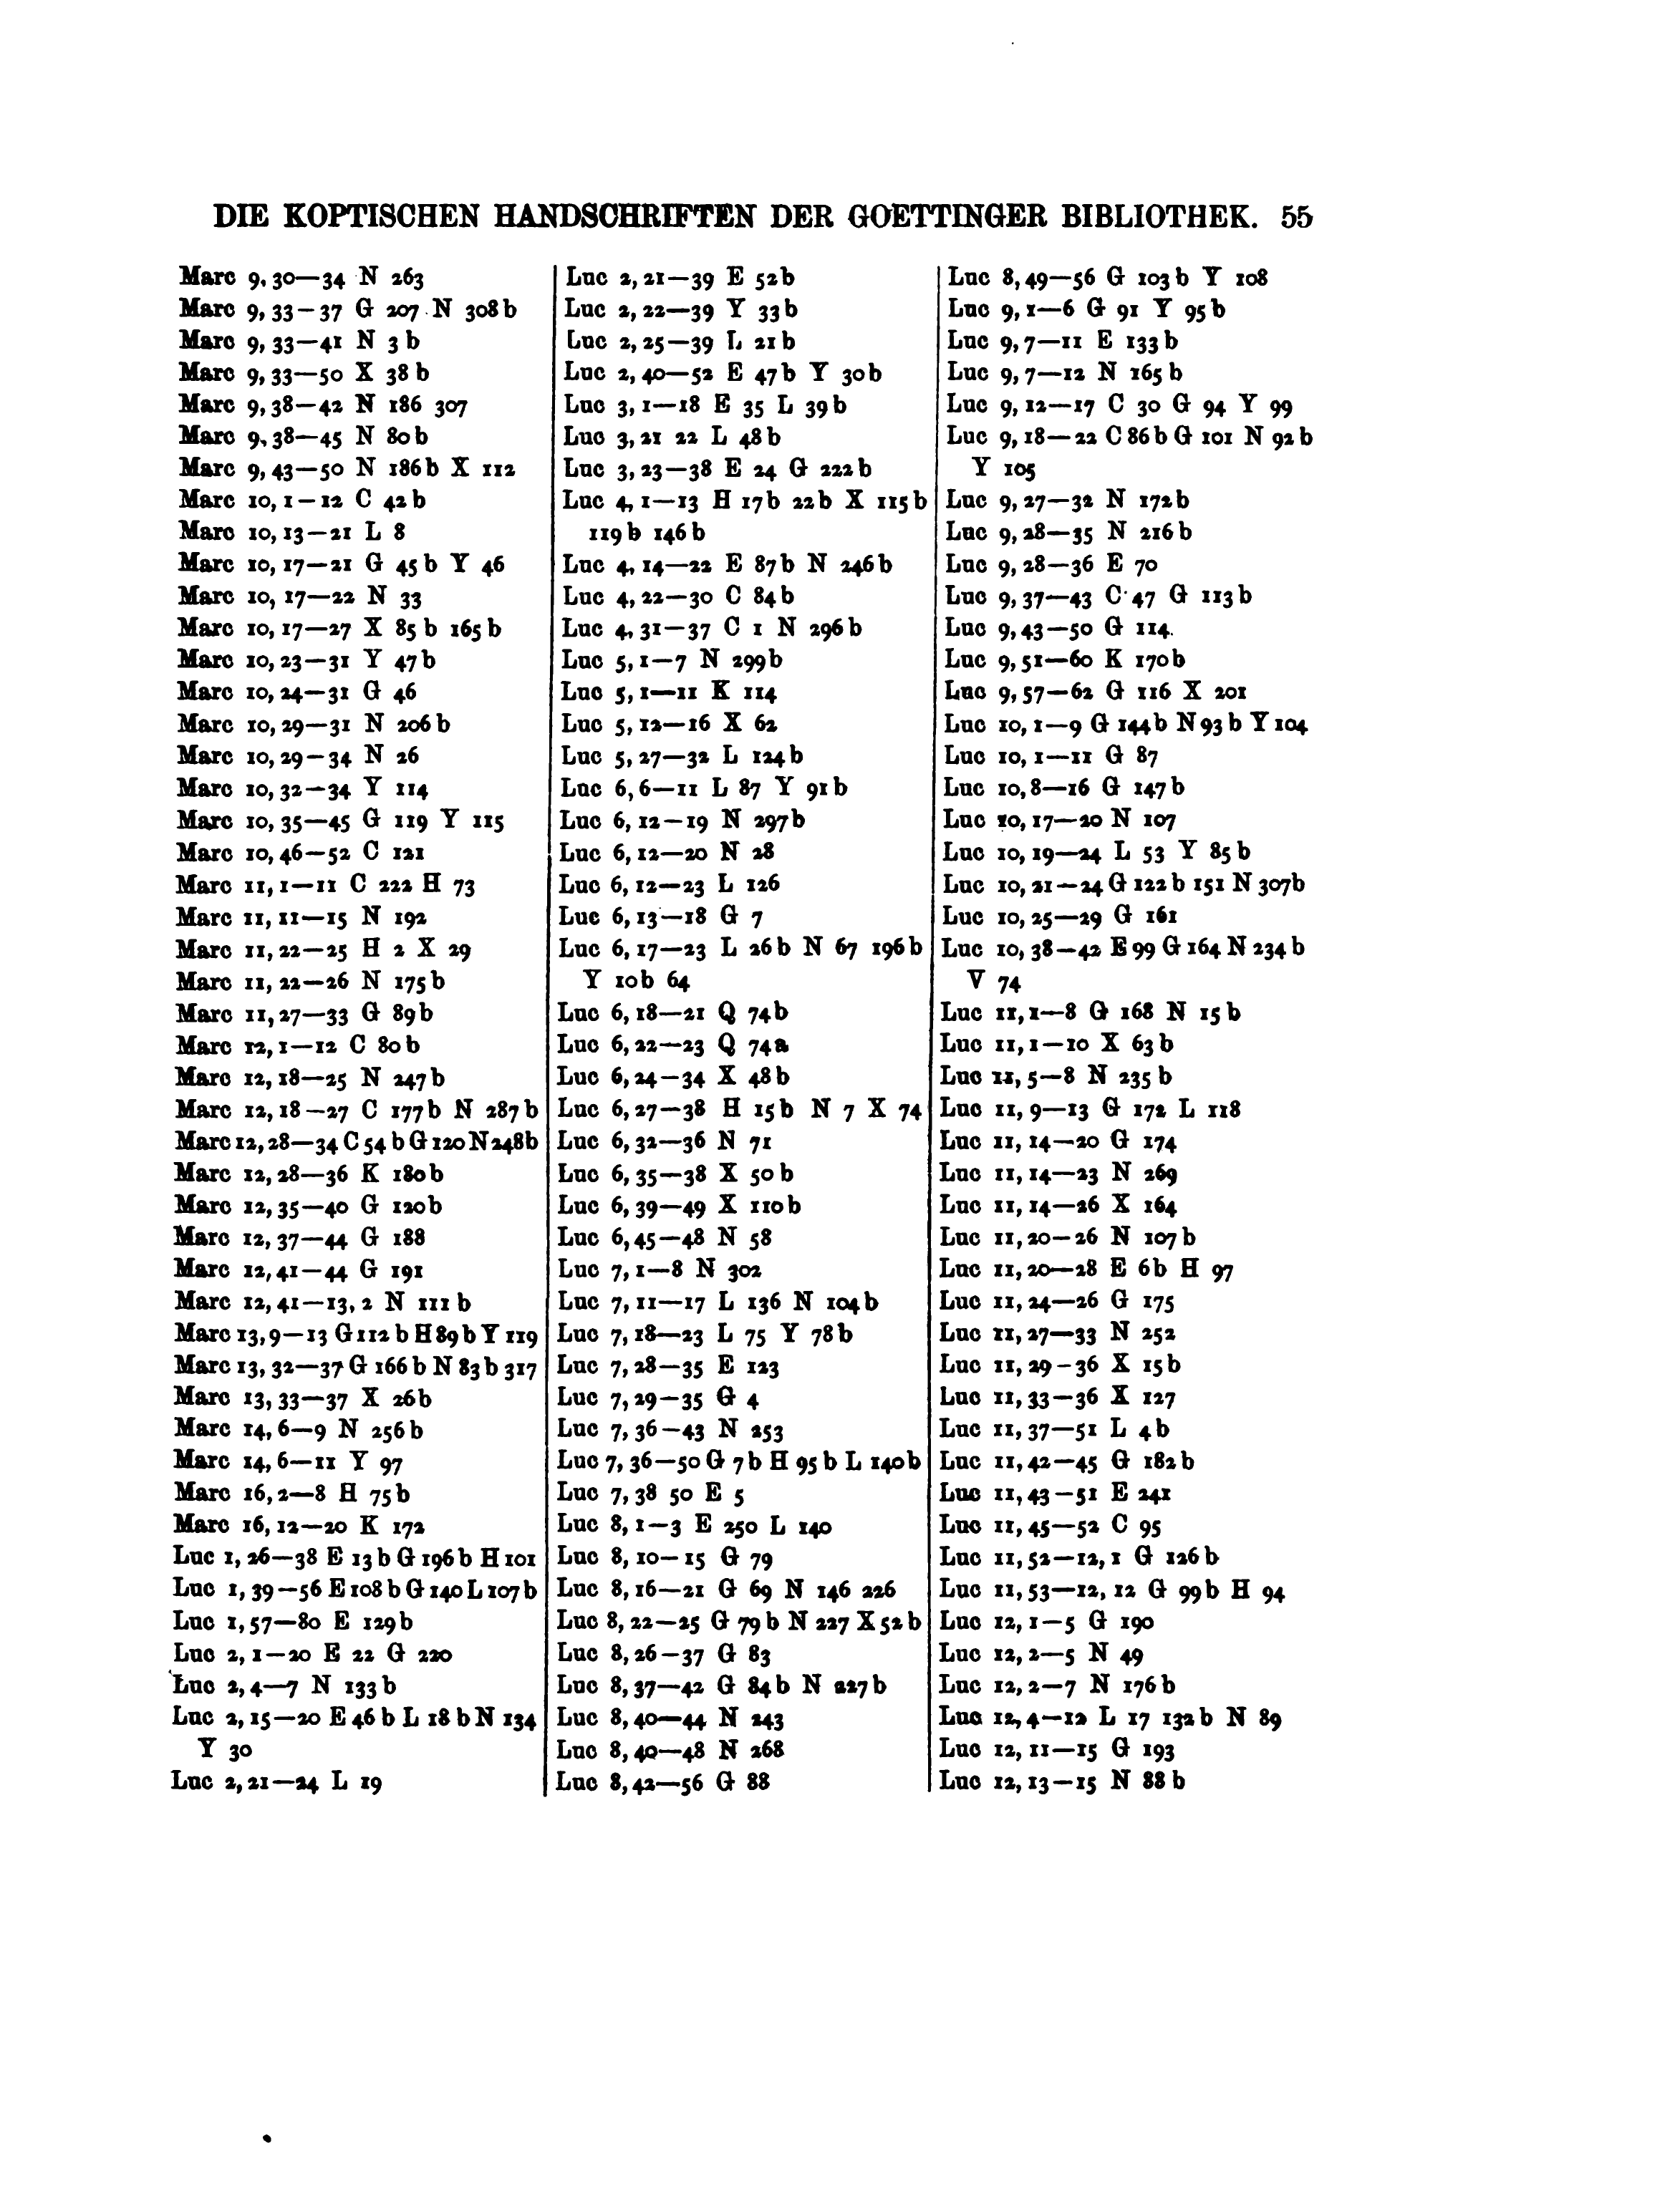 DIE KOPTISCHEN HANDSCHRIFTEN DER GOETTINGER BIBLIOTHEK. 55
Marc 9, 30—34 N 263
Marc 9, 33—37 G 207 N 308b
Marc 9, 33—41 N 3b
Marc 9, 33—50 X 38b
Marc 9, 38—42 N 186 307
Marc 9, 38—45 N 80b
Marc 9, 43—50 N 186b X 112
Marc 10, 1—12 C 42b
Marc 10, 13—21 L 8
Marc 10, 17—21 G 45b Y 46
Marc 10, 17—22 N 33
Marc 10, 17—27 X 85b 165b
Marc 10, 23—31 Y 47b
Marc 10, 24—31 G 46
Marc 10, 29—31 N 206b
Marc 10, 29—34 N 26
Marc 10, 32—34 Y 114
Marc 10, 35—45 G 119 Y 115
Marc 10, 46—52 C 121
Marc 11, 1—11 C 222 H 73
Marc 11, 11—15 N 192
Marc 11, 22—25 H 2 X 29
Marc 11, 22—26 N 175b
Marc 11, 27—33 G 89b
Marc 12, 1—12 C 80b
Marc 12, 18—25 N 247b
Marc 12, 18—27 C 177b N 287b
Marc 12, 28—34 C 54b G 120 N 248b
Marc 12, 28—36 K 180b
Marc 12, 35—40 G 120b
Marc 12, 37—44 G 188
Marc 12, 41—44 G 191
Marc 12, 41—13, 2 N 111b
Marc 13, 9—13 G 112b H 89b Y 119
Marc 13, 32—37 G 166b N 83b 317
Marc 13, 33—37 X 26b
Marc 14, 6—9 N 256b
Marc 14, 6—11 Y 97
Marc 16, 2—8 H 75b
Marc 16, 12—20 K 172
Luc 1, 26—38 E 13b G 196b H 101
Luc 1, 39—56 E 108b G 140 L 107b
Luc 1, 57—80 E 129b
Luc 2, 1—20 E 22 G 220
Luc 2, 4—7 N 133b
Luc 2, 15—20 E 46b L 18b N 134
Y 30
Luc 2, 21—24 L 19
Luc 2, 21—39 E 52b
Luc 2, 22—39 Y 33b
Luc 2, 25—39 L 21b
Luc 2, 40—52 E 47b Y 30b
Luc 3, 1—18 E 35 L 39b
Luc 3, 21 22 L 48b
Luc 3, 23—38 E 24 G 222b
Luc 4, 1—13 H 17b 22b X 115b
119b 146b
Luc 4, 14—22 E 87b N 246b
Luc 4, 22—30 C 84b
Luc 4, 31—37 C 1 N 296b
Luc 5, 1—7 N 299b
Luc 5, 1—11 K 114
Luc 5, 12—16 X 62
Luc 5, 27—32 L 124b
Luc 6, 6—11 L 87 Y 91b
Luc 6, 12—19 N 297b
Luc 6, 12—20 N 28
Luc 6, 12—23 L 126
Luc 6, 13—18 G 7
Luc 6, 17—23 L 26b N 67 196b
Y 10b 64
Luc 6, 18—21 Q 74b
Luc 6, 22—23 Q 74a
Luc 6, 24—34 X 48b
Luc 6, 27—38 H 15b N 7 X 74
Luc 6, 32—36 N 71
Luc 6, 35—38 X 50b
Luc 6, 39—49 X 110b
Luc 6, 45—48 N 58
Luc 7, 1—8 N 302
Luc 7, 11—17 L 136 N 104b
Luc 7, 18—23 L 75 Y 78b
Luc 7, 28—35 E 123
Luc 7, 29—35 G 4
Luc 7, 36—43 N 253
Luc 7, 36—50 G 7b H 95b L 140b
Luc 7, 38 50 E 5
Luc 8, 1—3 E 250 L 140
Luc 8, 10—15 G 79
Luc 8, 16—21 G 69 N 146 226
Luc 8, 22—25 G 79b N 227 X 52b
Luc 8, 26—37 G 83
Luc 8, 37—42 G 84b N 227b
Luc 8, 40—44 N 243
Luc 8, 40—48 N 268
Luc 8, 42—56 G 88
Luc 8, 49—56 G 103b Y 108
Luc 9, 1—6 G 91 Y 95b
Luc 9, 7—11 E 133b
Luc 9, 7—12 N 165b
Luc 9, 12—17 C 30 G 94 Y 99
Luc 9, 18—22 C 86b G 101 N 92b
Y 105
Luc 9, 27—32 N 172b
Luc 9, 28—35 N 216b
Luc 9, 28—36 E 70
Luc 9, 37—43 C 47 G 113b
Luc 9, 43—50 G 114
Luc 9, 51—60 K 170b
Luc 9, 57—62 G 116 X 201
Luc 10, 1—9 G 144b N 93b Y 104
Luc 10, 1—11 G 87
Luc 10, 8—16 G 147b
Luc 10, 17—20 N 107
Luc 10, 19—24 L 53 Y 85b
Luc 10, 21—24 G 122b 151 N 307b
Luc 10, 25—29 G 161
Luc 10, 38—42 E 99 G 164 N 234b
V 74
Luc 11, 1—8 G 168 N 15b
Luc 11, 1—10 X 63b
Luc 11, 5—8 N 235b
Luc 11, 9—13 G 172 L 118
Luc 11, 14—20 G 174
Luc 11, 14—23 N 269
Luc 11, 14—26 X 164
Luc 11, 20—26 N 107b
Luc 11, 20—28 E 6b H 97
Luc 11, 24—26 G 175
Luc 11, 27—33 N 252
Luc 11, 29—36 X 15b
Luc 11, 33—36 X 127
Luc 11, 37—51 L 4b
Luc 11, 42—45 G 182b
Luc 11, 43—51 E 241
Luc 11, 45—52 C 95
Luc 11, 52—12, 1 G 126b
Luc 11, 53—12, 12 G 99b H 94
Luc 12, 1—5 G 190
Luc 12, 2—5 N 49
Luc 12, 2—7 N 176b
Luc 12, 4—12 L 17 132b N 89
Luc 12, 11—15 G 193
Luc 12, 13—15 N 88b